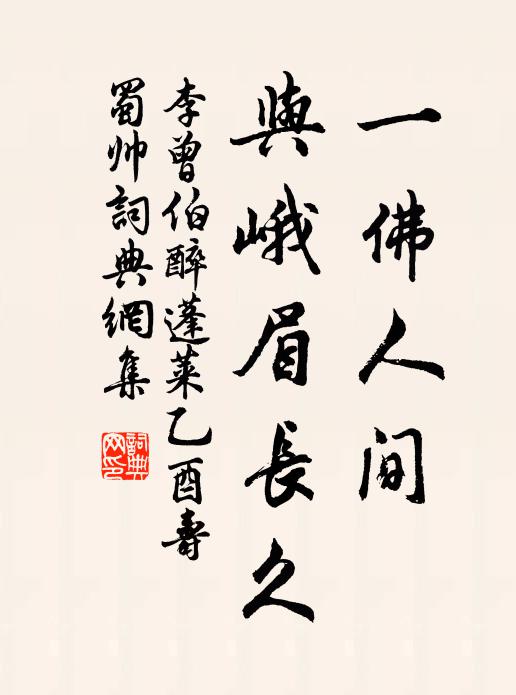 一佛人间
與峨眉長久
李曾伯醉蓬莱乙酉壽
蜀帅詞典網集
詞典网印